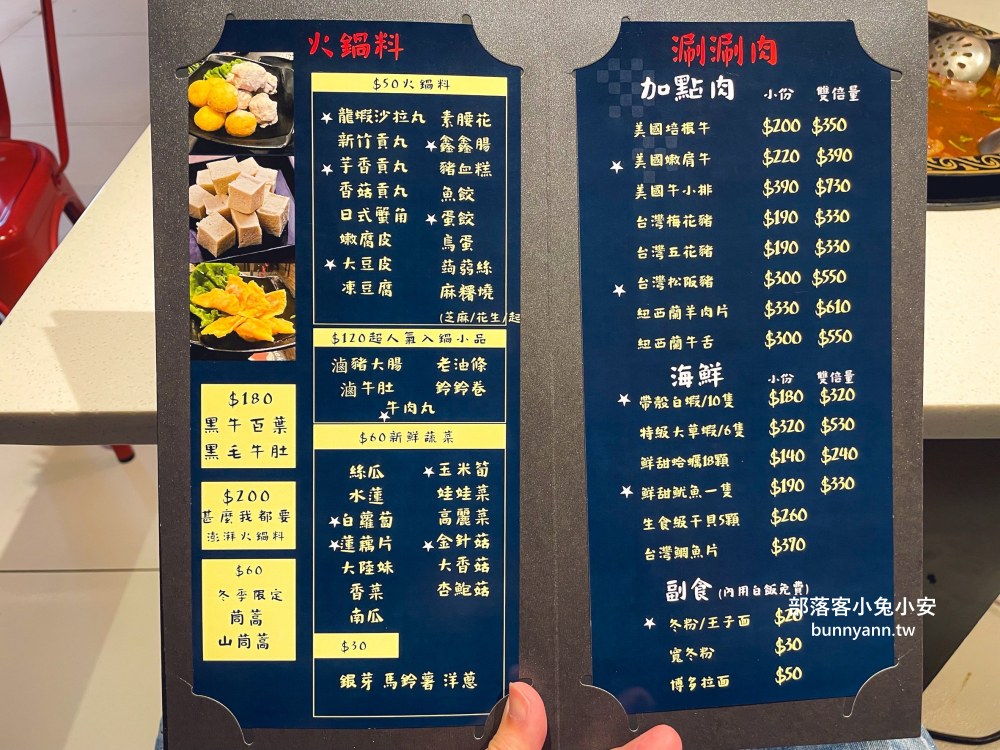 火鍋料
$50火鍋料
龍蝦沙拉丸 素腰花
新竹貢丸 鑫鑫腸
芋香貢丸 豬血糕
香菇貢丸 魚餃
日式蟹角 蛋餃
嫩腐皮 鳥蛋
大豆皮 蒟蒻絲
凍豆腐 麻糬燒
(芝麻/花生/起
$120超人氣入鍋小品
滷豬大腸 老油條
滷牛肚 鈴鈴卷
牛肉丸
$60新鮮蔬菜
絲瓜 玉米筍
水蓮 娃娃菜
白蘿蔔 高麗菜
蓮藕片 金針菇
大陸妹 大香菇
香菜 杏鮑菇
南瓜
$30
銀芽 馬鈴薯 洋蔥
$180
黑牛百葉
黑毛牛肚
$200
甚麼我都要
澎湃火鍋料
$60
冬季限定
茼蒿
山茼蒿
涮涮肉
加點肉 小份 雙倍量
美國培根牛 $200 $350
美國嫩肩牛 $220 $390
美國牛小排 $390 $730
台灣梅花豬 $190 $330
台灣五花豬 $190 $330
台灣松阪豬 $300 $550
紐西蘭羊肉片 $330 $610
紐西蘭牛舌 $300 $550
海鮮 小份 雙倍量
帶殼白蝦/10隻 $180 $320
特級大草蝦/6隻 $320 $530
鮮甜蛤蠣18顆 $140 $240
鮮甜魷魚一隻 $190 $330
生食級干貝5顆 $260
台灣鯛魚片 $370
副食(內用白飯免費)
冬粉/王子麵 $20
寬冬粉 $30
博多拉麵 $50
部落客小兔小安
bunnyann.tw